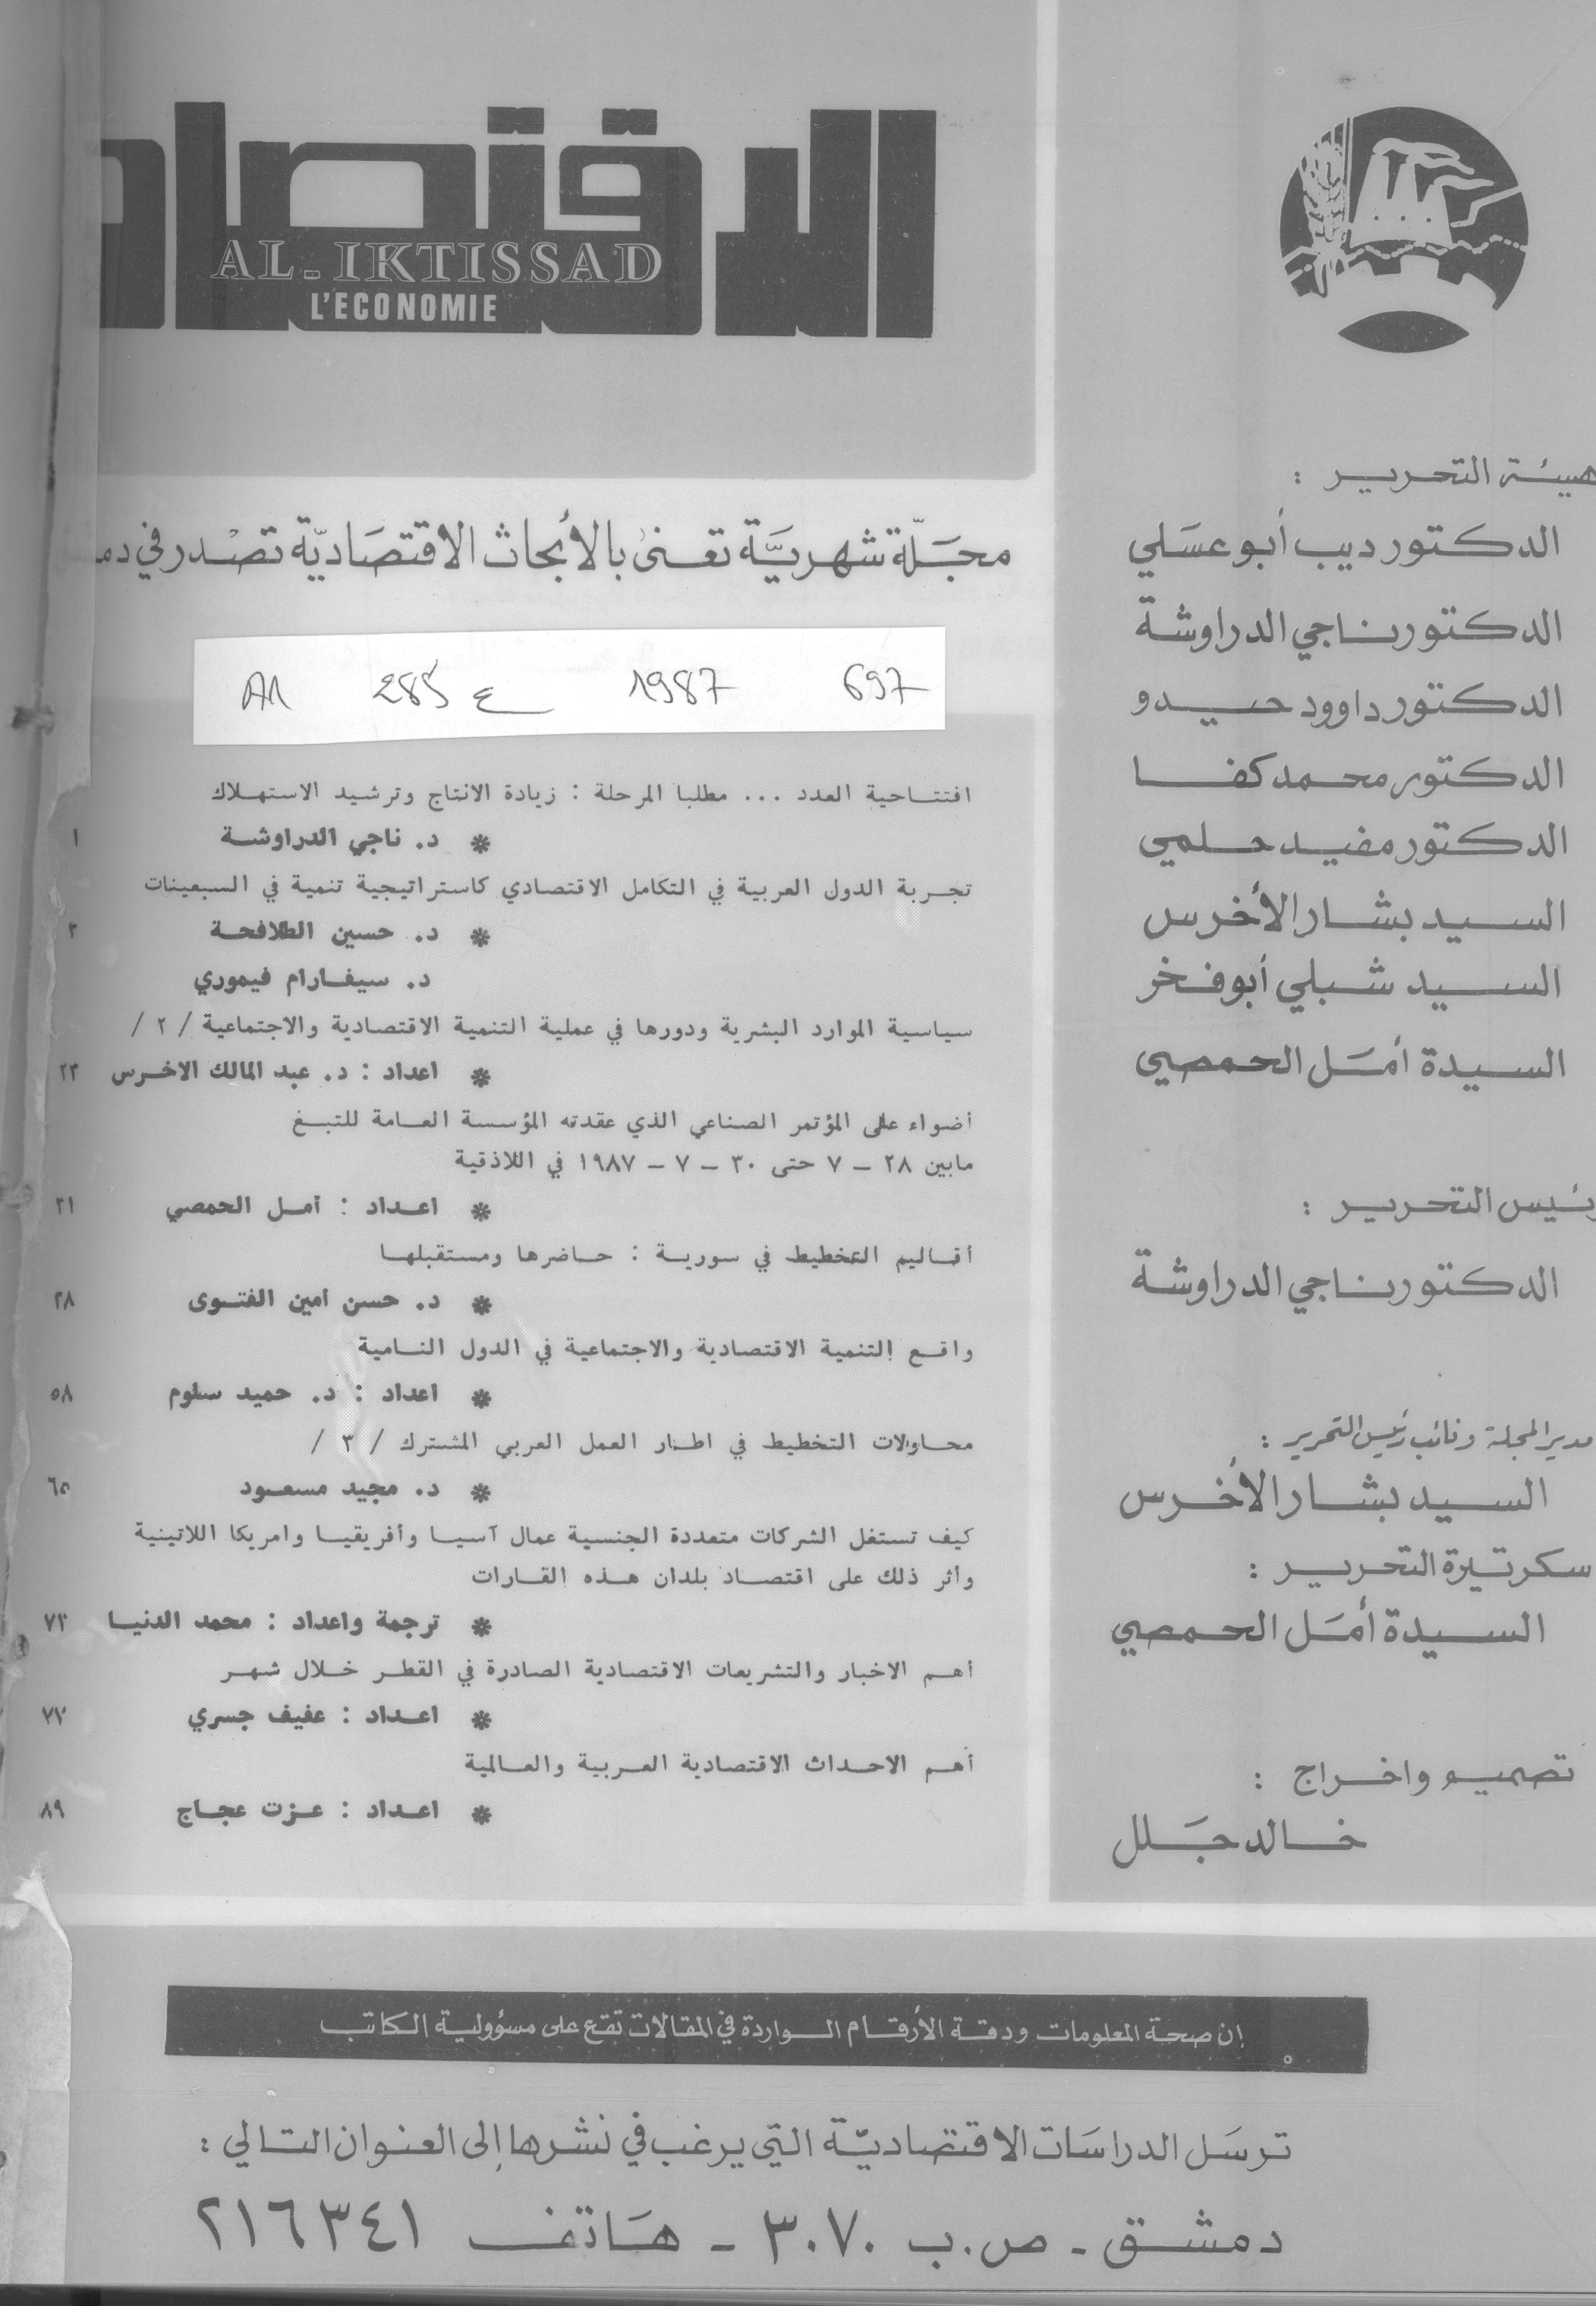 الاقتصاد
AL-IKTISSAD
L'ECONOMIE
مجلة شهرية تعنى بالأبحاث الاقتصادية تصدر في
697 1987 ع 285
هيئة التحرير :
الدكتور ديب أبو عسلي
الدكتور ناجي الدراوشة
الدكتور داوود حيدو
الدكتور محمد كفا
الدكتور مفيد حلمي
السيد بشار الأخرس
السيد شبلي أبو فخر
السيدة أمل الحمصي
رئيس التحرير :
الدكتور ناجي الدراوشة
مدير المجلة ونائب رئيس التحرير :
السيد بشار الأخرس
سكرتيرة التحرير :
السيدة أمل الحمصي
تصميم واخراج :
خالد جلل
افتتاحية العدد ... مطلبا المرحلة : زيادة الانتاج وترشيد الاستهلاك
* د. ناجي الدراوشة ١
تجربة الدول العربية في التكامل الاقتصادي كاستراتيجية تنمية في السبعينات
* د. حسين الطلافحة
د. سيفارام فيموري
سياسية الموارد البشرية ودورها في عملية التنمية الاقتصادية والاجتماعية / ٢ /
* اعداد : د. عبد المالك الاخرس
أضواء على المؤتمر الصناعي الذي عقدته المؤسسة العامة للتبغ
مابين ٢٨ – ٧ حتى ٣٠ – ٧ – ١٩٨٧ في اللاذقية
* اعداد : أمل الحمصي
أقاليم التخطيط في سورية : حاضرها ومستقبلها
* د. حسن أمين الفتوى
واقع التنمية الاقتصادية والاجتماعية في الدول النامية
* اعداد : د. حميد سلوم ٥٨
محاولات التخطيط في اطار العمل العربي المشترك / ٣ /
* د. مجيد مسعود ٦٥
كيف تستغل الشركات متعددة الجنسية عمال آسيا وأفريقيا وامريكا اللاتينية
وأثر ذلك على اقتصاد بلدان هذه القارات
* ترجمة واعداد : محمد الدنيا
أهم الاخبار والتشريعات الاقتصادية الصادرة في القطر خلال شهر
* اعداد : عفيف جسري
أهم الاحداث الاقتصادية العربية والعالمية
* اعداد : عزت عجاج ٨٩
إن صحة المعلومات ودقة الأرقام الواردة في المقالات تقع على مسؤولية الكاتب
ترسل الدراسات الاقتصادية التي يرغب في نشرها إلى العنوان التالي :
دمشق - ص.ب ٣٠٧٠ - هاتف ٢١٦٣٤١